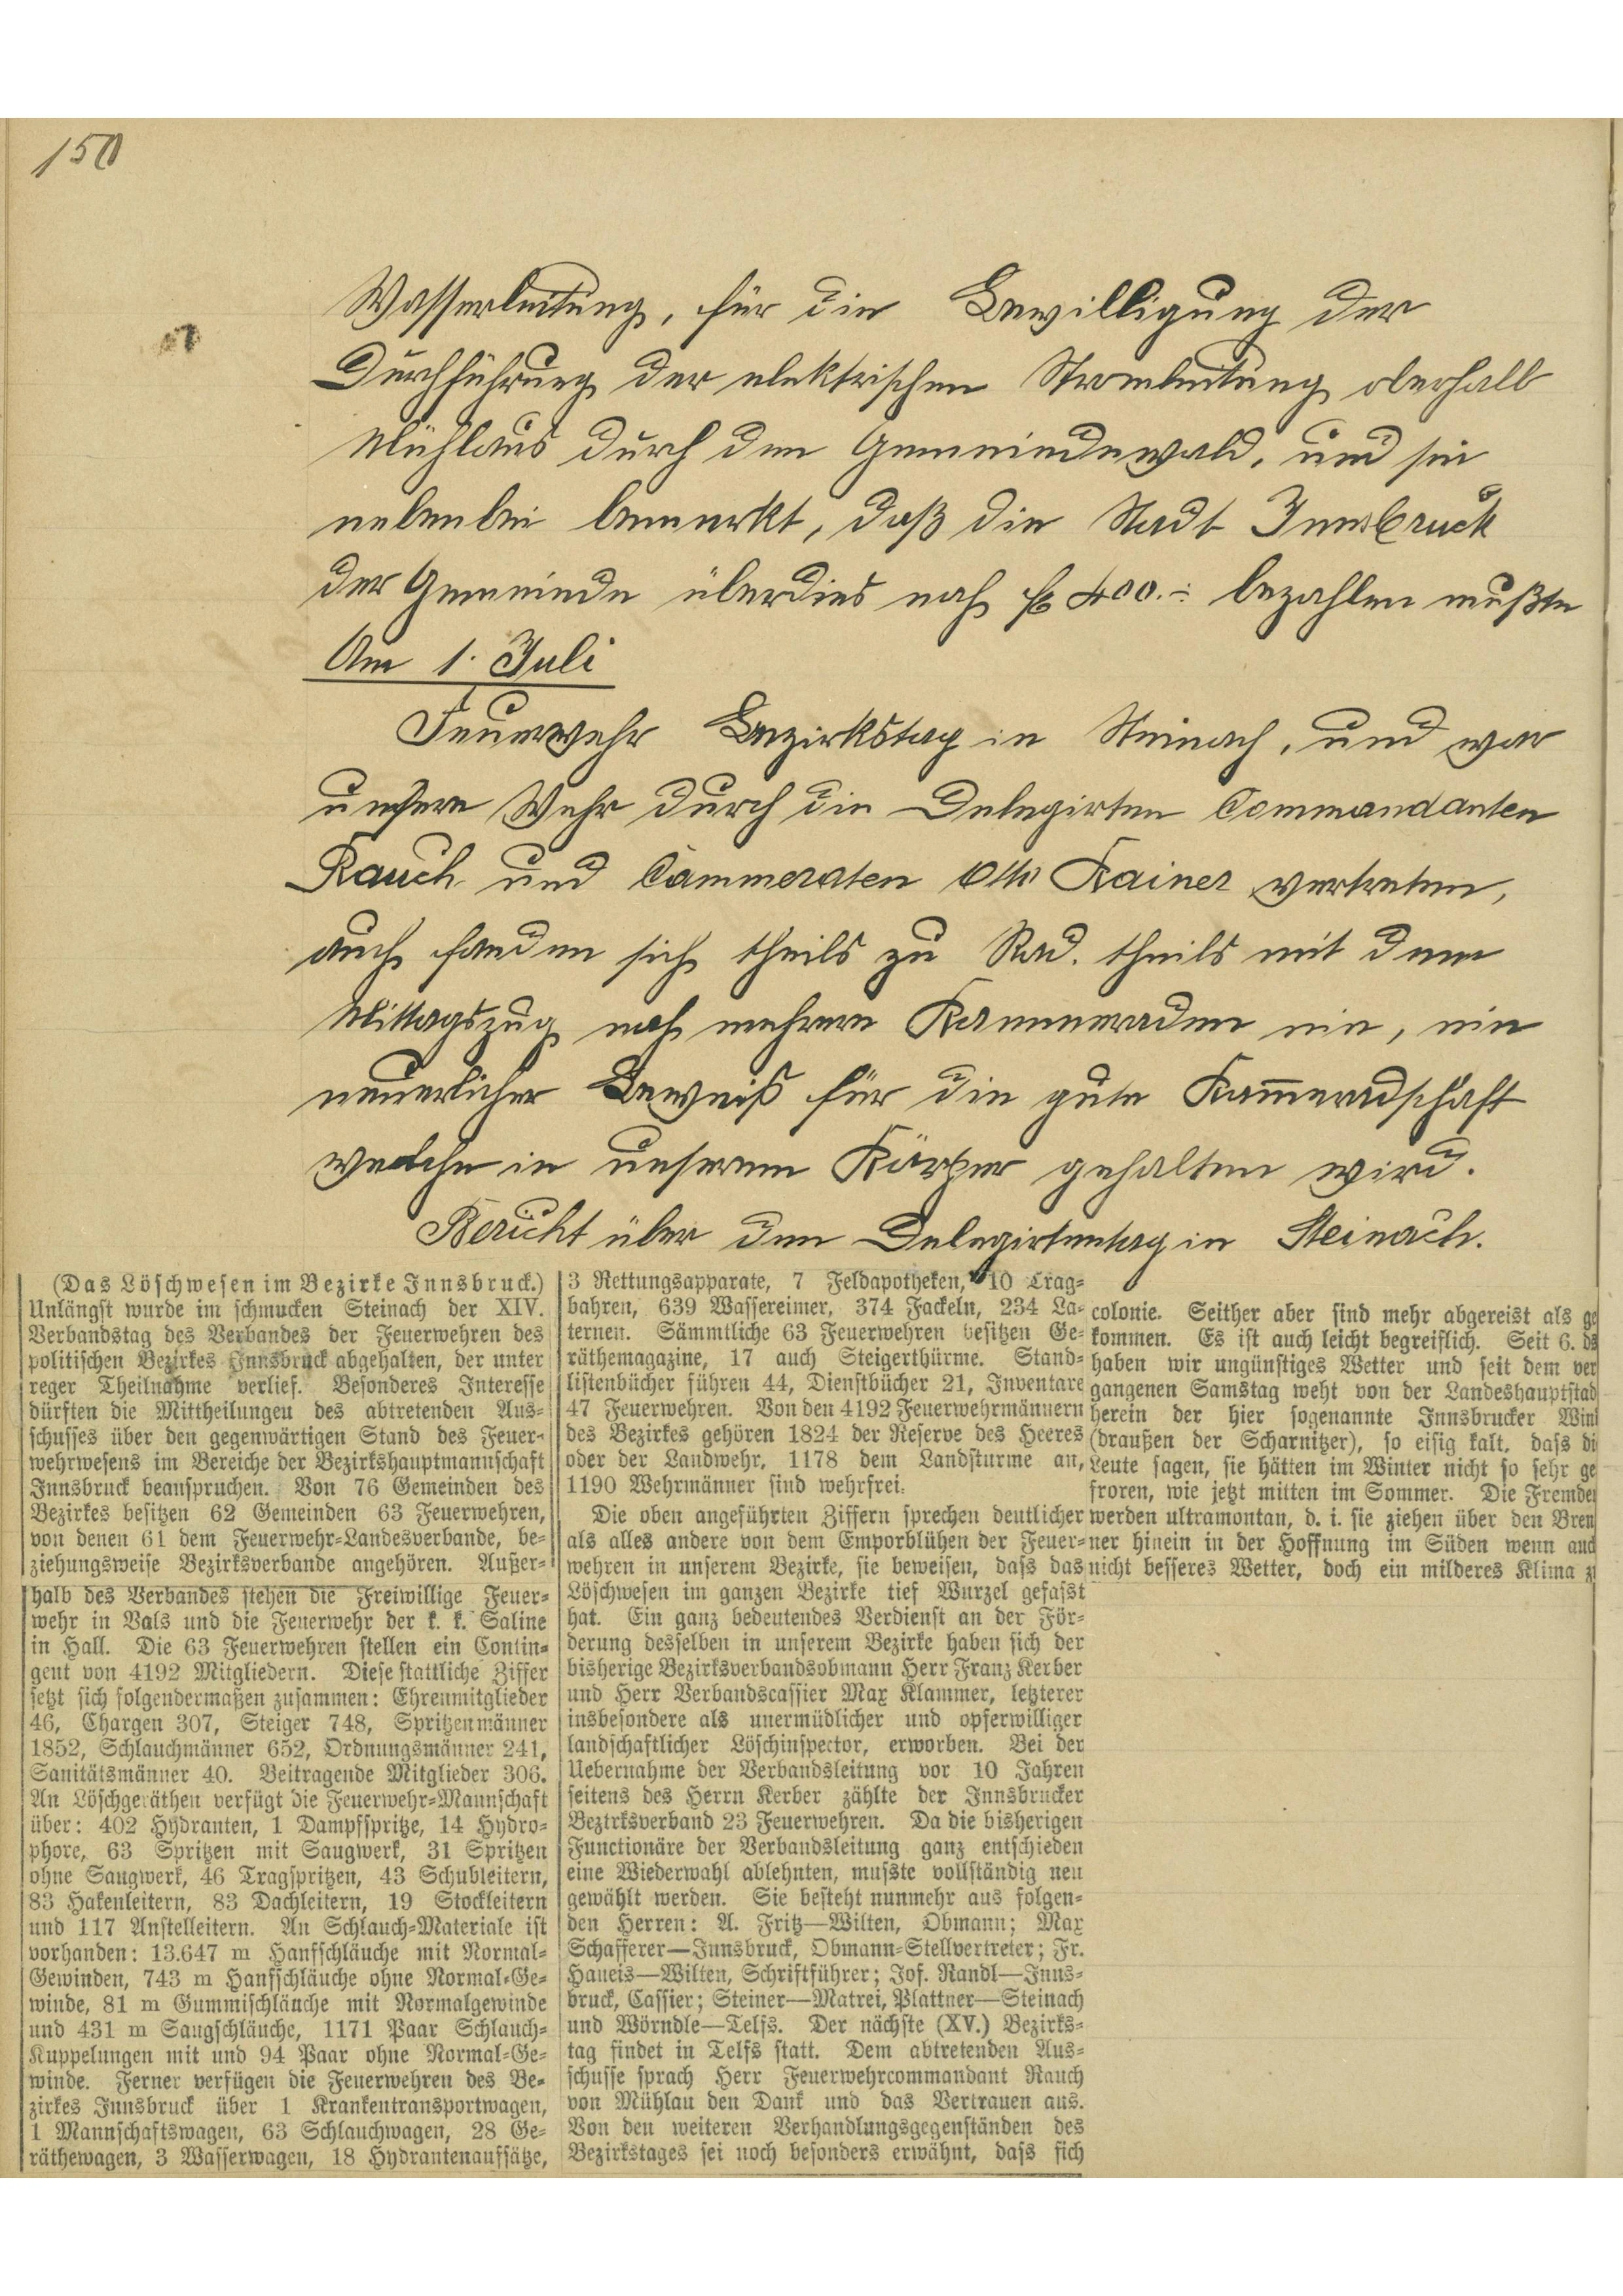 150
Wasserleitung, für die Bewilligung der
Durchführung der elektrischen Stromleitung oberhalb
Mühlaus durch den Gemeindewald, und sei
nebenbei bemerkt, daß die Stadt Innsbruck
der Gemeinde überdies noch fl 400.- bezahlen mußte
Am 1. Juli
Feuerwehr Bezirkstag in Steinach, und war
unsere Wehr durch die Delegirten Commandanten
Rauch und Cammeraten Otto Kainer vertreten,
auch fanden sich theils zu Rad. theils mit dem
Mittagszug noch mehrere Kammeraden ein, ein
neuerlicher Beweiß für die gute Kam̅eradschaft
welche in unserem Körper gehalten wird.
Bericht über den Delegirtentag in Steinach.
(Das Löschwesen im Bezirke Innsbruck.)
Unlängst wurde im schmucken Steinach der XIV.
Verbandstag des Verbandes der Feuerwehren des
politischen Bezirkes Innsbruck abgehalten, der unter
reger Theilnahme verlief. Besonderes Interesse
dürften die Mittheilungen des abtretenden Aus-
schusses über den gegenwärtigen Stand des Feuer-
wehrwesens im Bereiche der Bezirkshauptmannschaft
Innsbruck beanspruchen. Von 76 Gemeinden des
Bezirkes besitzen 62 Gemeinden 63 Feuerwehren,
von denen 61 dem Feuerwehr-Landesverbande, be-
ziehungsweise Bezirksverbande angehören. Außer-
halb des Verbandes stehen die Freiwillige Feuer-
wehr in Vals und die Feuerwehr der k. k. Saline
in Hall. Die 63 Feuerwehren stellen ein Contin-
gent von 4192 Mitgliedern. Diese stattliche Ziffer
setzt sich folgendermaßen zusammen: Ehrenmitglieder
46, Chargen 307, Steiger 748, Spritzenmänner
1852, Schlauchmänner 652, Ordnungsmänner 241,
Sanitätsmänner 40. Beitragende Mitglieder 306.
An Löschgeräthen verfügt die Feuerwehr-Mannschaft
über: 402 Hydranten, 1 Dampfspritze, 14 Hydro-
phore, 63 Spritzen mit Saugwerk, 31 Spritzen
ohne Saugwerk, 46 Tragspritzen, 43 Schubleitern,
83 Hakenleitern, 83 Dachleitern, 19 Stockleitern
und 117 Anstelleitern. An Schlauch-Materiale ist
vorhanden: 13.647 m Hanfschläuche mit Normal-
Gewinden, 743 m Hanfschläuche ohne Normal-Ge-
winde, 81 m Gummischläuche mit Normalgewinde
und 431 m Saugschläuche, 1171 Paar Schlauch-
Kuppelungen mit und 94 Paar ohne Normal-Ge-
winde. Ferner verfügen die Feuerwehren des Be-
zirkes Innsbruck über 1 Krankentransportwagen,
1 Mannschaftswagen, 63 Schlauchwagen, 28 Ge-
räthewagen, 3 Wasserwagen, 18 Hydrantenaufsätze,
3 Rettungsapparate, 7 Feldapotheken, 10 Trag-
bahren, 639 Wassereimer, 374 Fackeln, 234 La-
ternen. Sämmtliche 63 Feuerwehren besitzen Ge-
räthemagazine, 17 auch Steigerthürme. Stand-
listenbücher führen 44, Dienstbücher 21, Inventare
47 Feuerwehren. Von den 4192 Feuerwehrmännern
des Bezirkes gehören 1824 der Reserve des Heeres
oder der Landwehr, 1178 dem Landsturme an,
1190 Wehrmänner sind wehrfrei.
Die oben angeführten Ziffern sprechen deutlicher
als alles andere von dem Emporblühen der Feuer-
wehren in unserem Bezirke, sie beweisen, dass das
Löschwesen im ganzen Bezirke tief Wurzel gefasst
hat. Ein ganz bedeutendes Verdienst an der För-
derung desselben in unserem Bezirke haben sich der
bisherige Bezirksverbandsobmann Herr Franz Kerber
und Herr Verbandscassier Max Klammer, letzterer
insbesondere als unermüdlicher und opferwilliger
landschaftlicher Löschinspector, erworben. Bei der
Uebernahme der Verbandsleitung vor 10 Jahren
seitens des Herrn Kerber zählte der Innsbrucker
Bezirksverband 23 Feuerwehren. Da die bisherigen
Functionäre der Verbandsleitung ganz entschieden
eine Wiederwahl ablehnten, musste vollständig neu
gewählt werden. Sie besteht nunmehr aus folgen-
den Herren: A. Fritz—Wilten, Obmann; Max
Schafferer—Innsbruck, Obmann-Stellvertreter; Fr.
Haueis—Wilten, Schriftführer; Jos. Randl—Inns-
bruck, Cassier; Steiner—Matrei, Plattner—Steinach
und Wörndle—Telfs. Der nächste (XV.) Bezirks-
tag findet in Telfs statt. Dem abtretenden Aus-
schusse sprach Herr Feuerwehrcommandant Rauch
von Mühlau den Dank und das Vertrauen aus.
Von den weiteren Verhandlungsgegenständen des
Bezirkstages sei noch besonders erwähnt, dass sich
colonie. Seither aber sind mehr abgereist als ge
kommen. Es ist auch leicht begreiflich. Seit 6. ds
haben wir ungünstiges Wetter und seit dem ver
gangenen Samstag weht von der Landeshauptstad
herein der hier sogenannte Innsbrucker Win
(draußen der Scharnitzer), so eisig kalt, dass di
Leute sagen, sie hätten im Winter nicht so sehr ge
froren, wie jetzt mitten im Sommer. Die Fremde
werden ultramontan, d. i. sie ziehen über den Bren
ner hinein in der Hoffnung im Süden wenn auch
nicht besseres Wetter, doch ein milderes Klima z